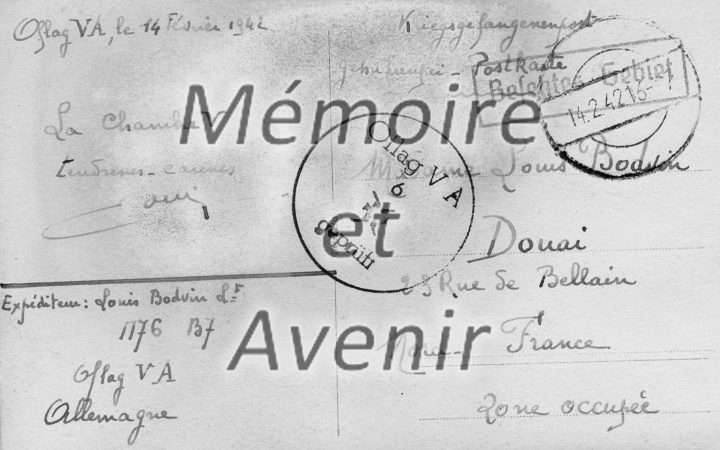 Oflag VA, le 14 Février 1942
La Chambre
Louis
Expéditeur: Louis Bodvin Lt
1176 B7
Oflag VA
Allemagne
Kriegsgefangenenpost
Postkarte
Besetztes Gebiet
14.2.42 16-
Oflag V A
6
geprüft
Madame Louis Bodvin
Douai
25 Rue de Bellain
Nord - France
Zone occupée
Mémoire
et
Avenir